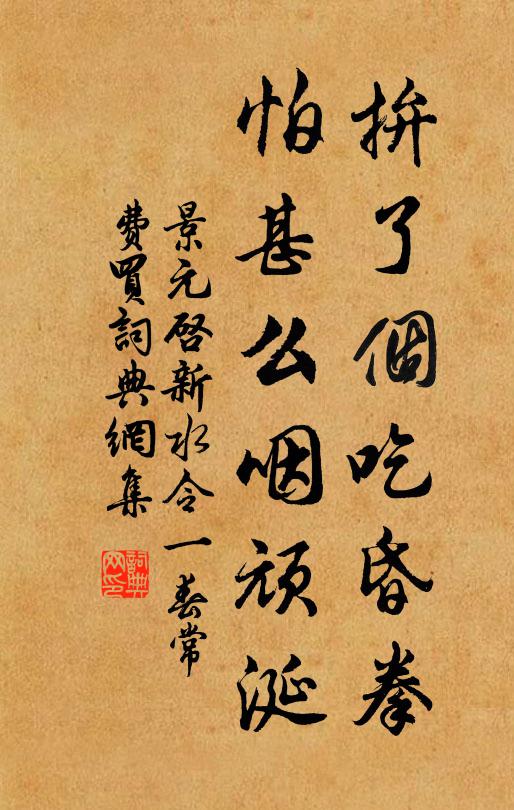 拚了個吃昏拳
怕甚么咽頑涎
景元启新水令一春常
費買詞典網集
詞典網印